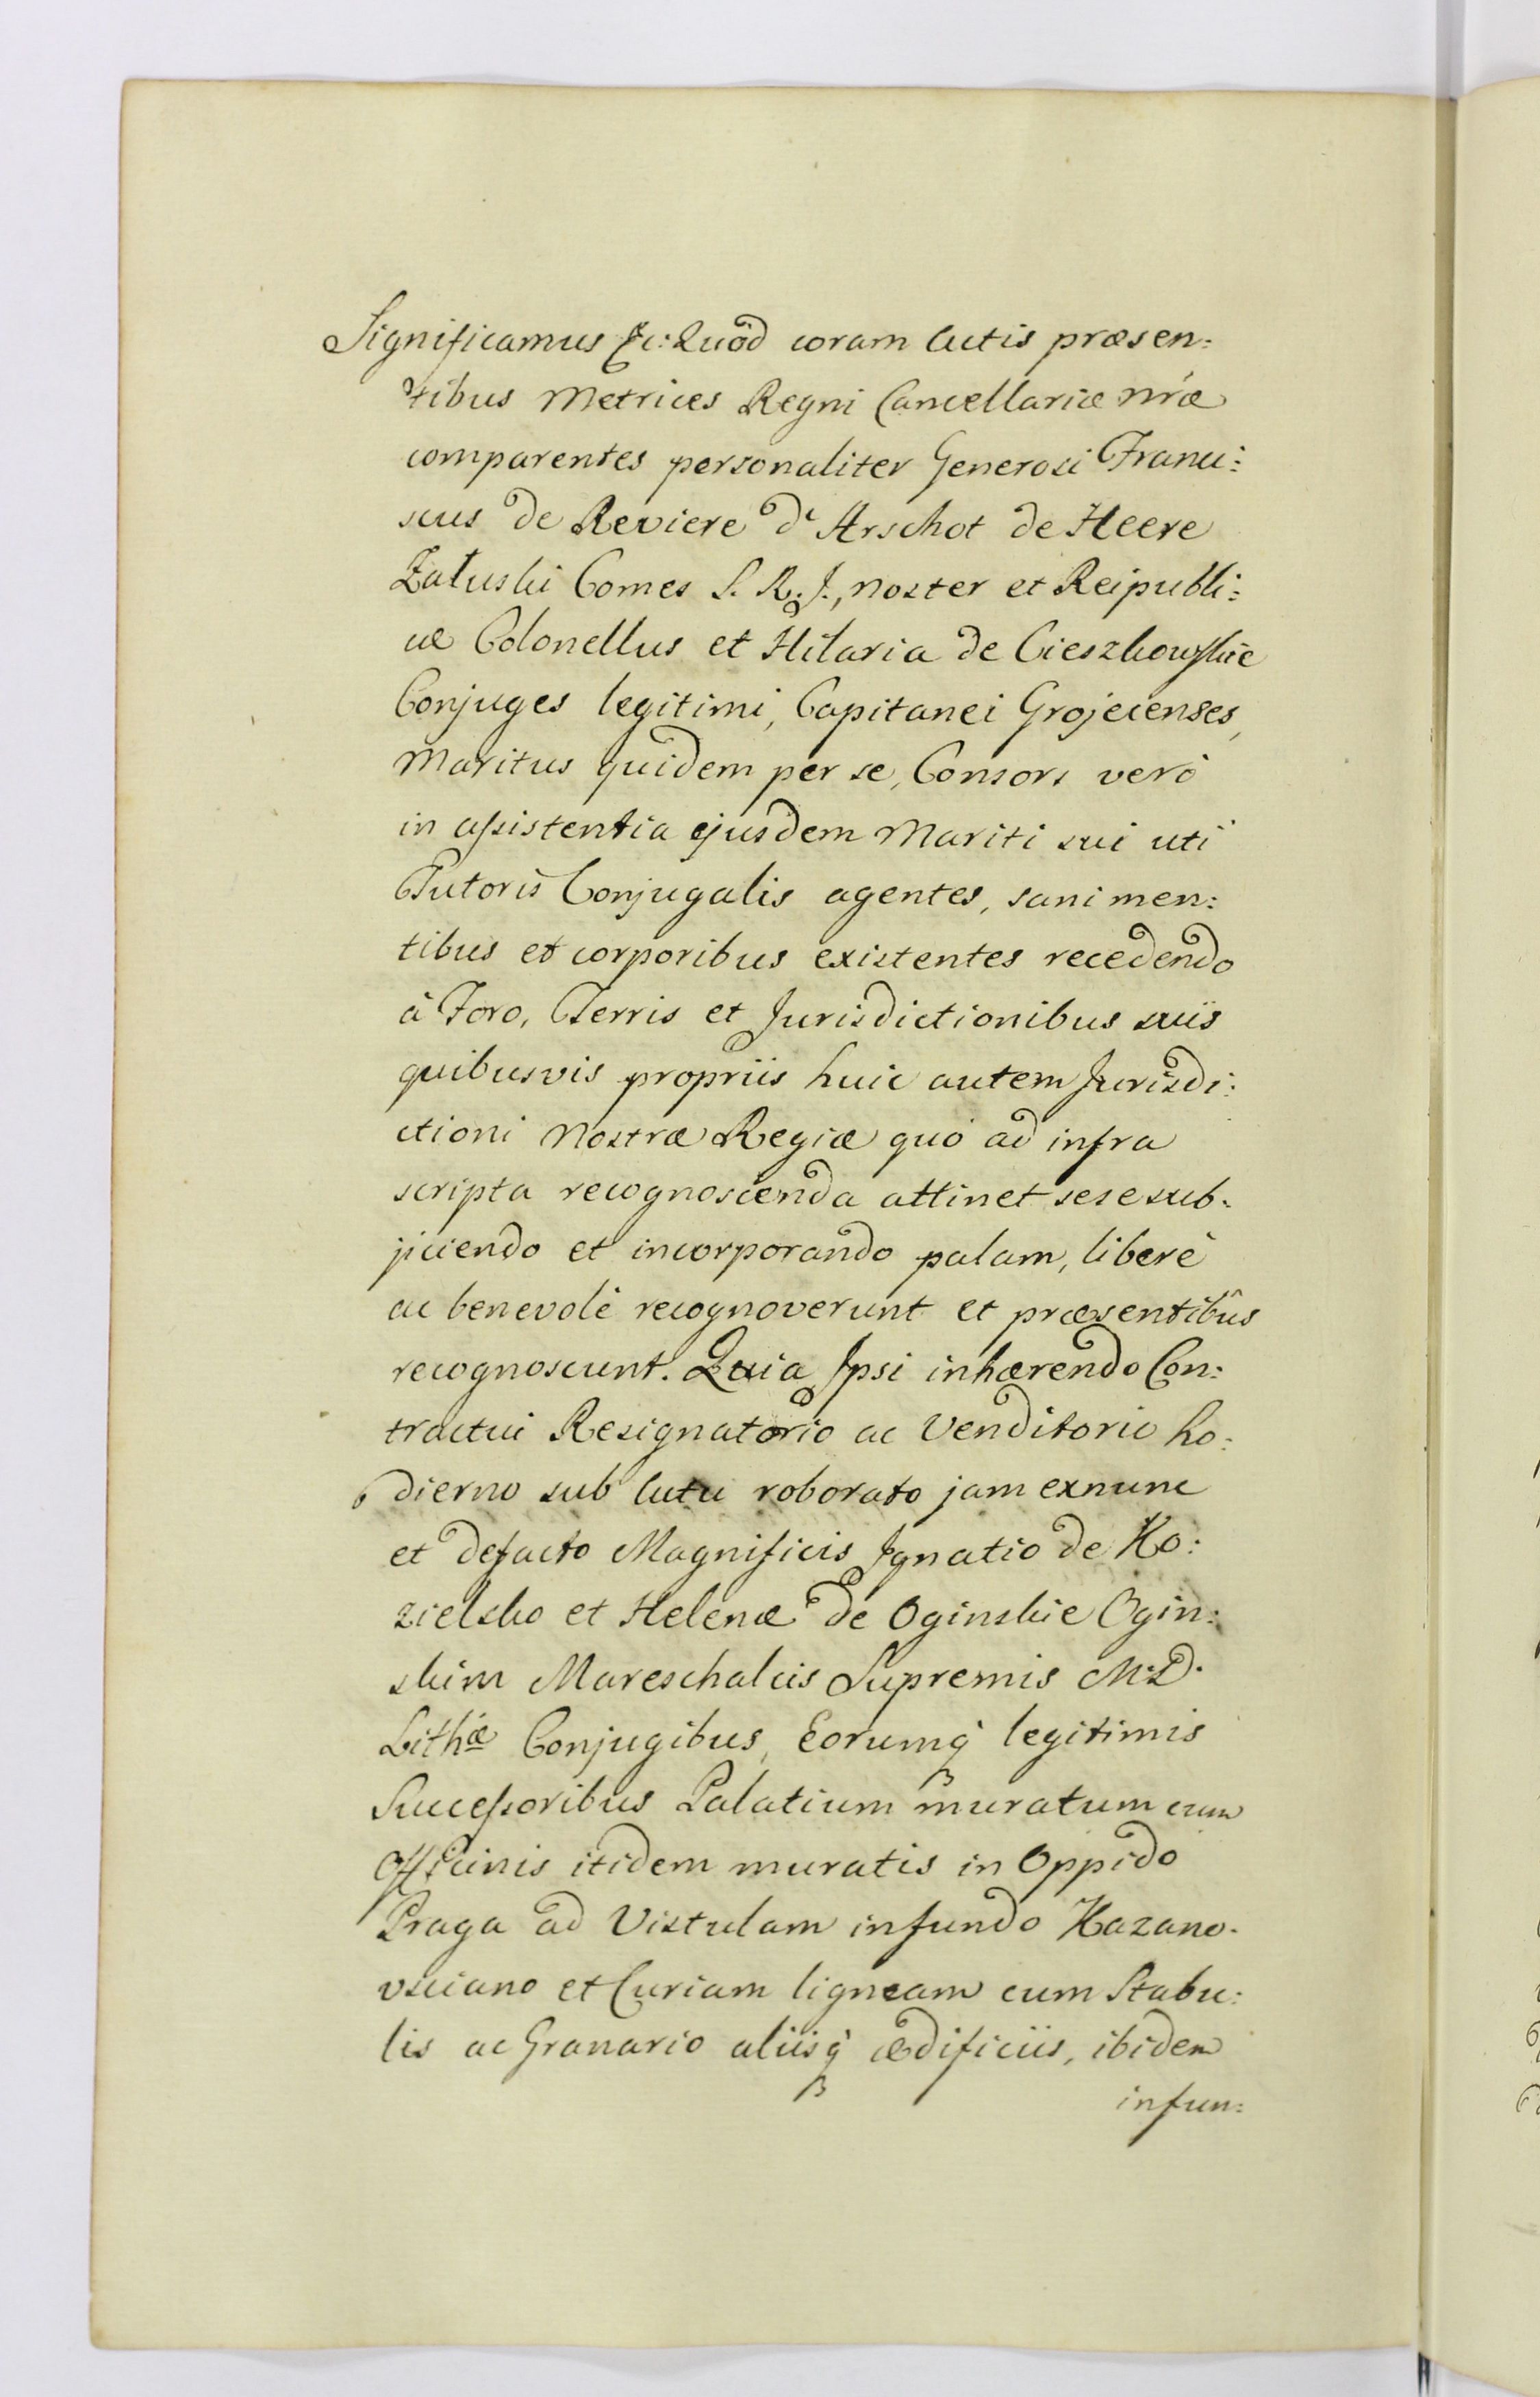 Significamus &c: Quod coram Actis præsen:
tibus Metrices Regni Cancellariæ nræ
comparentes personaliter Generosi Franci:
scus de Reviere d'Arschot de Heere
Załuski Comes S. R. J., noster et Reipubli:
cæ Colonellus et Hilaria de Cieszkowskie
Conjuges legitimi, Capitanei Grojecenses,
Maritus quidem per se, Consors verò
in assistentia ejusdem Mariti sui uti
Tutoris Conjugalis agentes, sani men:
tibus et corporibus existentes recedendo
à Foro, Terris et Jurisdictionibus suis
quibusvis propriis huic autem Jurisdi:
ctioni Nostræ Regiæ quó ad infra
scripta recognoscenda attinet sese sub:
jiciendo et incorporando palam, liberè
ac benevolè recognoverunt et præsentibûs
recognoscunt. Quia Ipsi inhærendo Con:
tractui Resignatorio ac Venditorio ho:
dierno sub Actu roborato jam exnunc
et defacto Magnificis Ignatio de Ko:
zielsko et Helenæ de Oginskie Ogin:
skim Mareschalcis Supremis M. D.
Lithæ Conjugibus, Eorumq legitimis
Successoribus Palatium muratum cum
Officinis itidem muratis in Oppido
Praga ad Vistulam in fundo Kazano:
vsciano et Curiam ligneam cum Stabu:
lis ac Granario aliisq ædificiis, ibidem
infun: